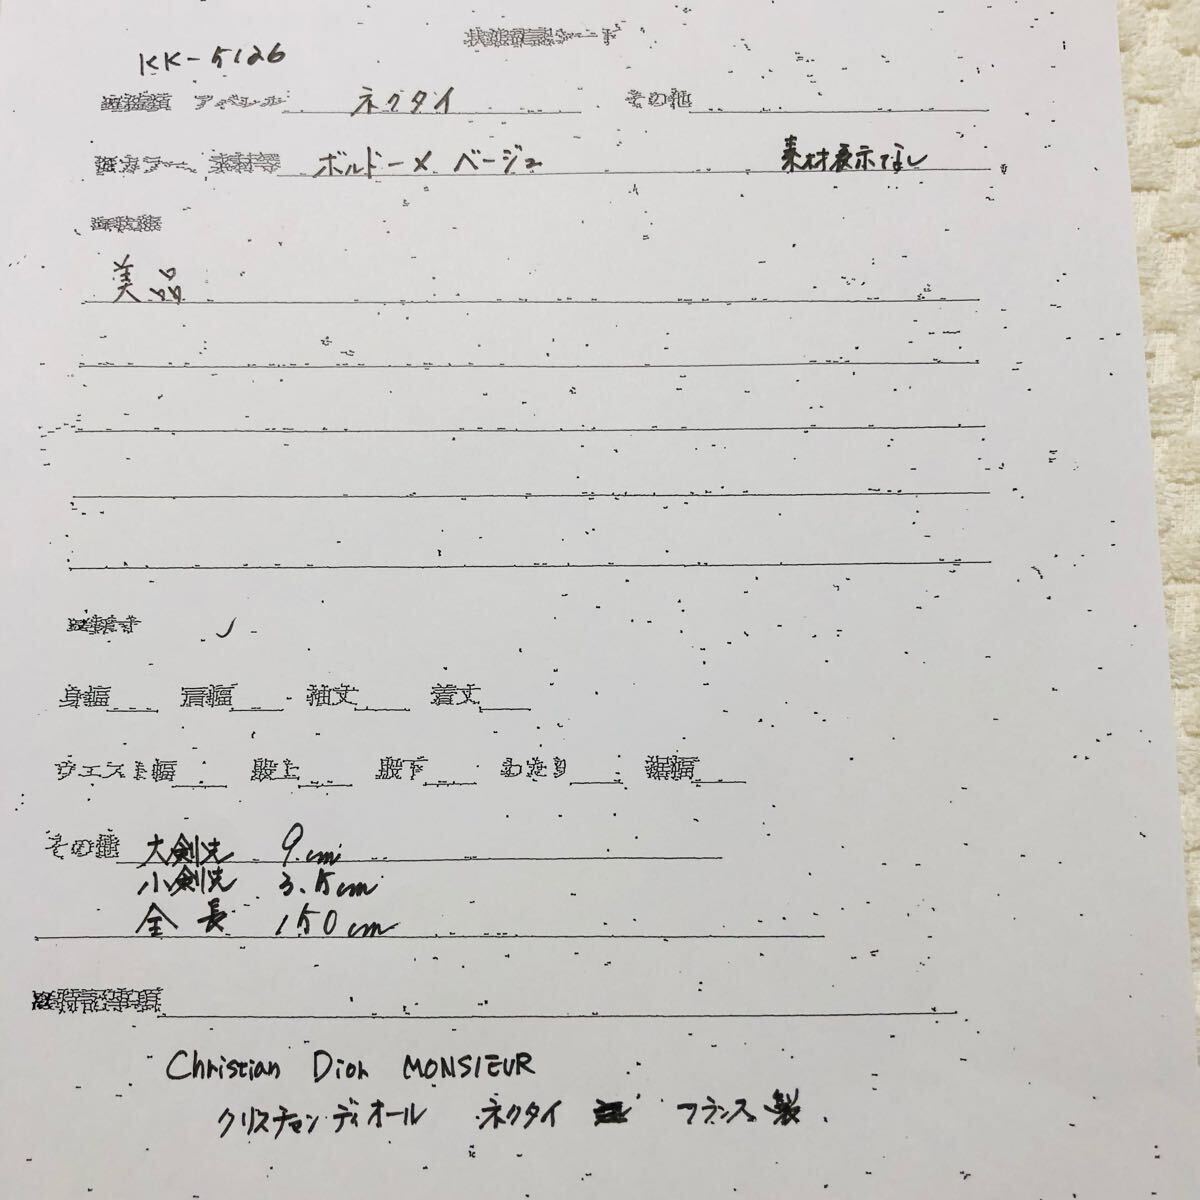 状態確認シート
KK-5126
アパレル ネクタイ その他
カラー 素材等 ボルドー × ベージュ 素材表示なし
美品
身幅 肩幅 袖丈 着丈
ウエスト幅 股上 股下 わたり 裾幅
その他 大剣先 9cm
小剣先 3.5cm
全長 150cm
※特記事項
Christian Dior MONSIEUR
クリスチャンディオール ネクタイ フランス製